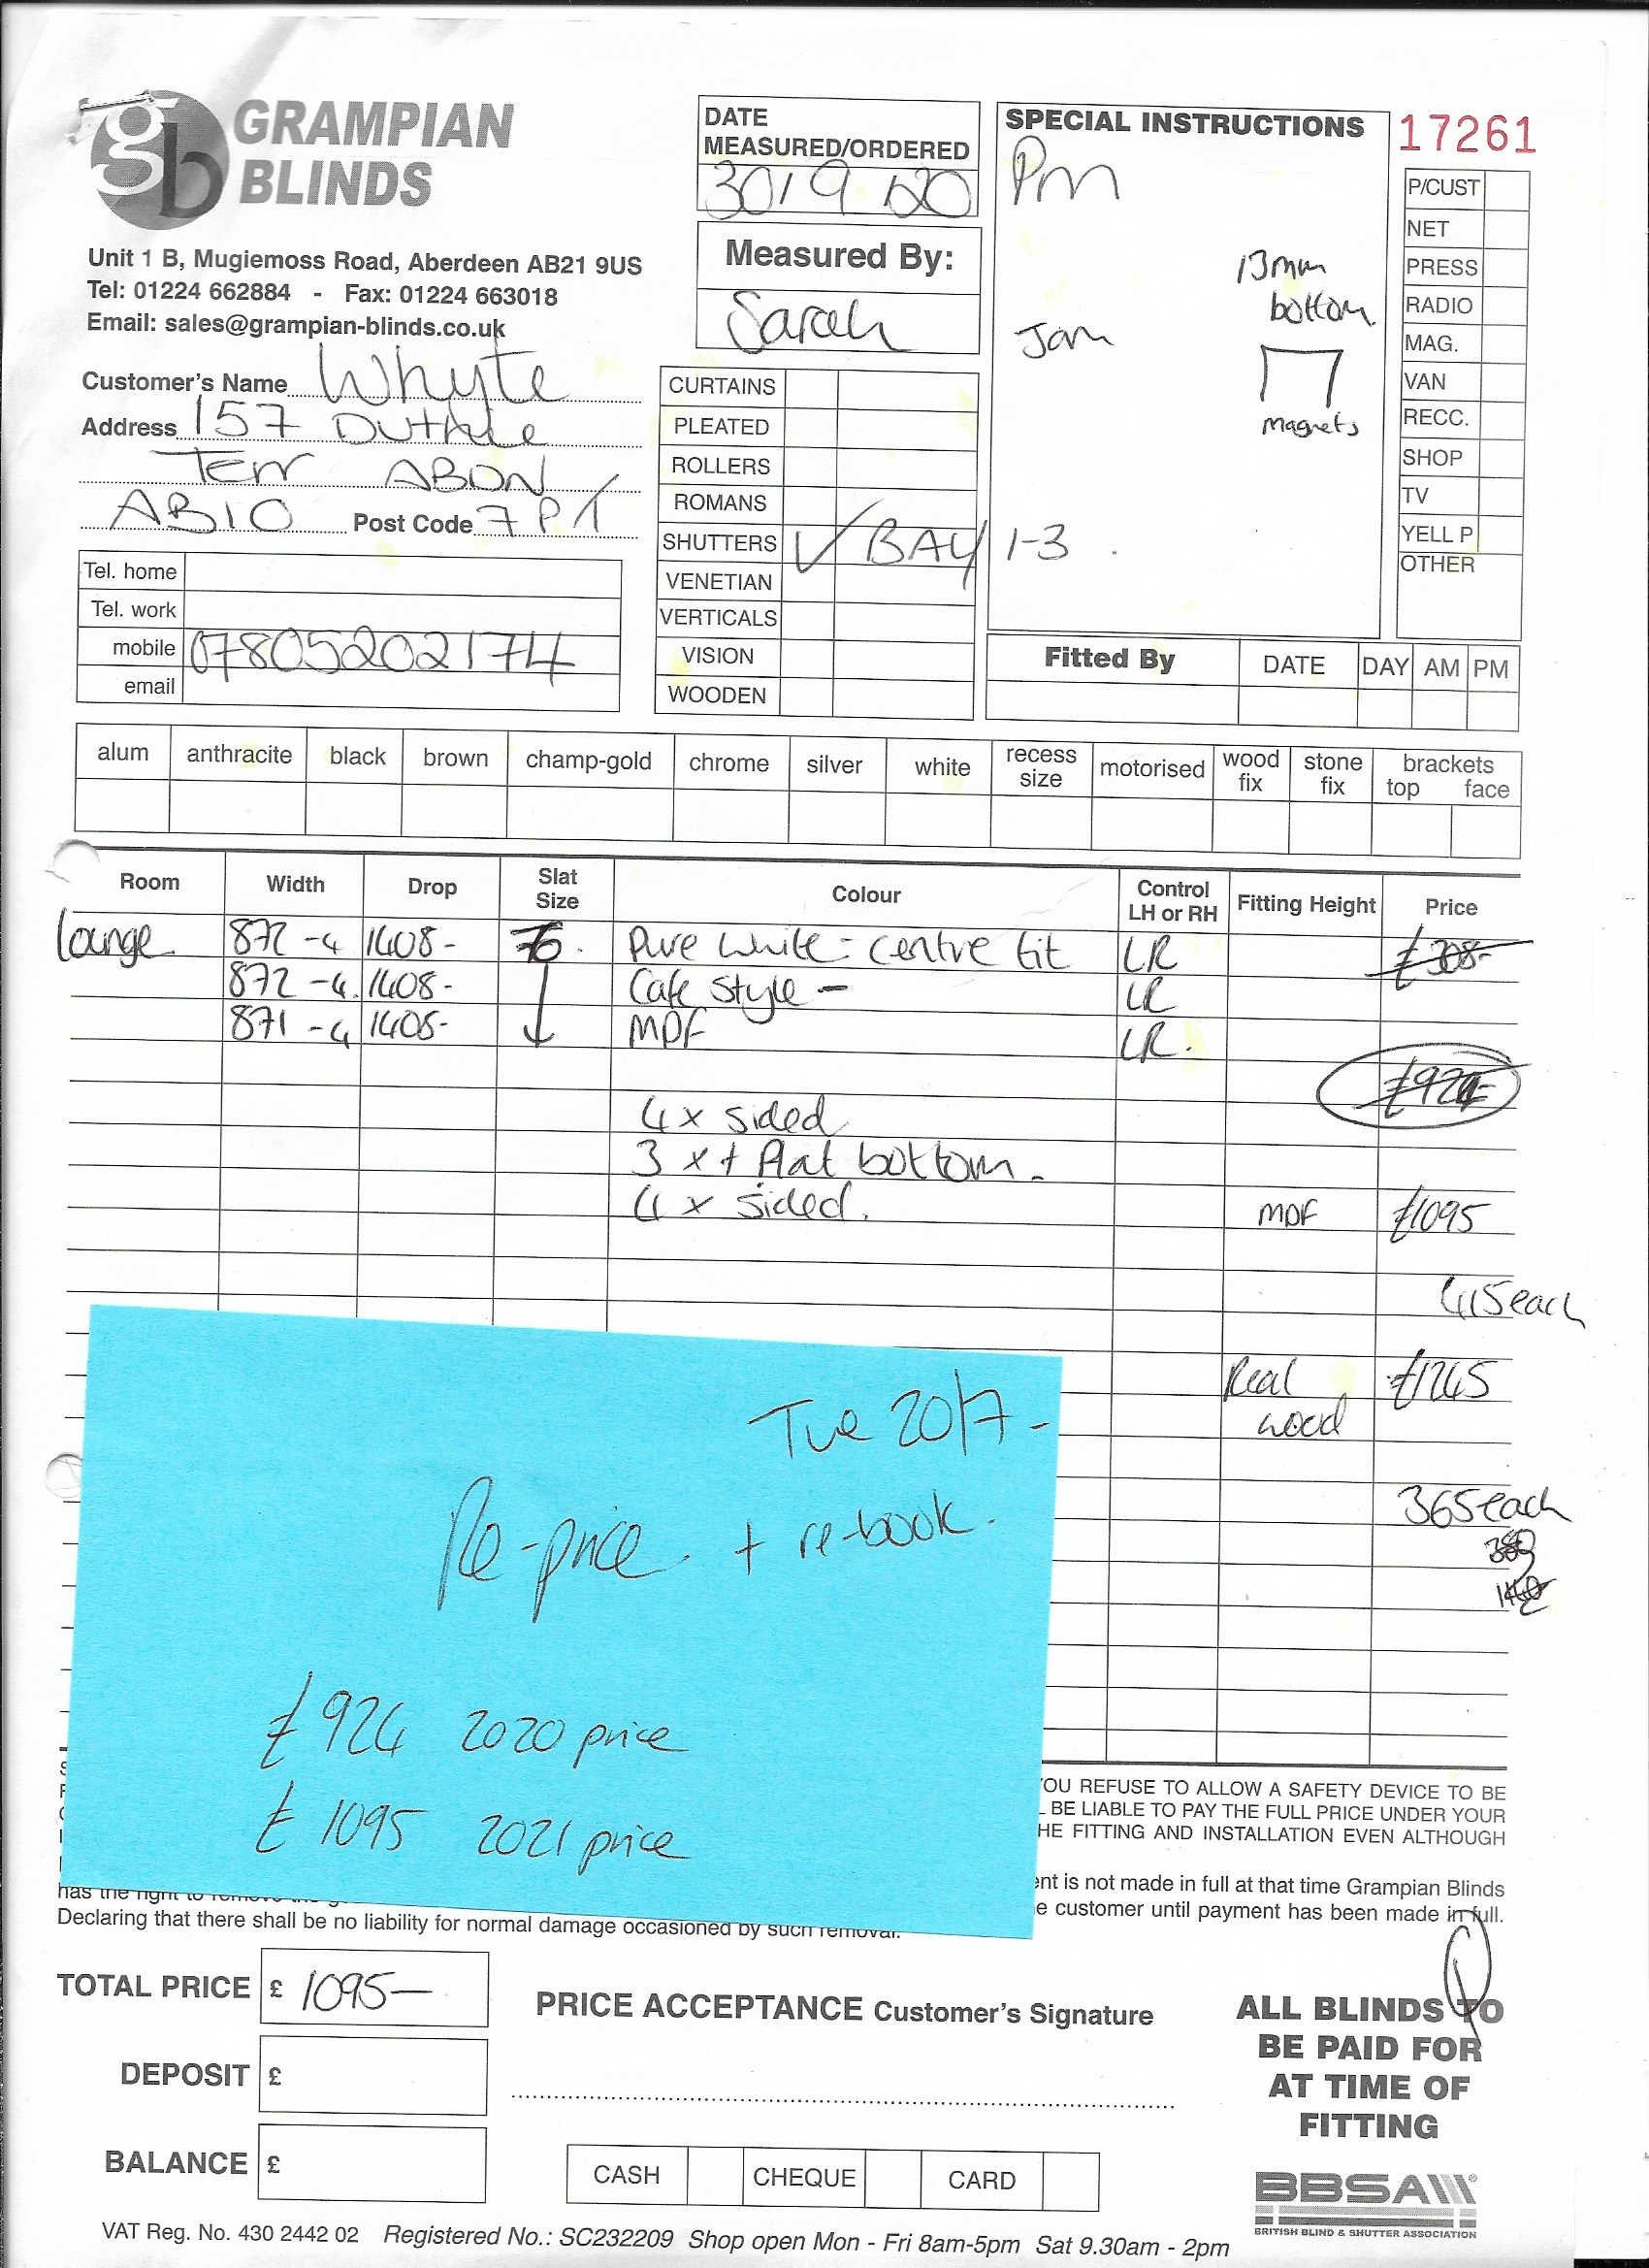 GRAMPIAN
BLINDS
Unit 1 B, Mugiemoss Road, Aberdeen AB21 9US
Tel: 01224 662884 - Fax: 01224 663018
Email: sales@grampian-blinds.co.uk
DATE
MEASURED/ORDERED
30/9/20
Measured By:
Sarah
SPECIAL INSTRUCTIONS
Pm
13mm
bottom.
Jam
magnets
1-3
17261
P/CUST
NET
PRESS
RADIO
MAG.
VAN
RECC.
SHOP
TV
YELL P
OTHER
Customer's Name Whyte
Address 157 Duthie
Terr ABDN
AB10 Post Code 7PT
Tel. home
Tel. work
mobile 07805202174
email
CURTAINS
PLEATED
ROLLERS
ROMANS
SHUTTERS ✓ BAY
VENETIAN
VERTICALS
VISION
WOODEN
Fitted By DATE DAY AM PM
alum anthracite black brown champ-gold chrome silver white recess size motorised wood fix stone fix brackets top face
Room Width Drop Slat Size Colour Control LH or RH Fitting Height Price
lounge 872-4 1408- 76. Pure White - centre tit LR £308-
872-4. 1408- Cafe Style - LR
871-4 1408- MDF LR.
£924-
4 x sided
3 x + flat bottom -
4 x sided.
MDF £1095
415each
Real £1245
wood
365each
Tue 20/7 -
Re-price + re-book.
£924 2020 price
£1095 2021 price
YOU REFUSE TO ALLOW A SAFETY DEVICE TO BE
BE LIABLE TO PAY THE FULL PRICE UNDER YOUR
THE FITTING AND INSTALLATION EVEN ALTHOUGH
is not made in full at that time Grampian Blinds
has the right to remove the
customer until payment has been made in full.
Declaring that there shall be no liability for normal damage occasioned by such removal.
TOTAL PRICE £ 1095-
DEPOSIT £
BALANCE £
PRICE ACCEPTANCE Customer's Signature
CASH CHEQUE CARD
ALL BLINDS TO
BE PAID FOR
AT TIME OF
FITTING
BBSA
BRITISH BLIND & SHUTTER ASSOCIATION
VAT Reg. No. 430 2442 02 Registered No.: SC232209 Shop open Mon - Fri 8am-5pm Sat 9.30am - 2pm